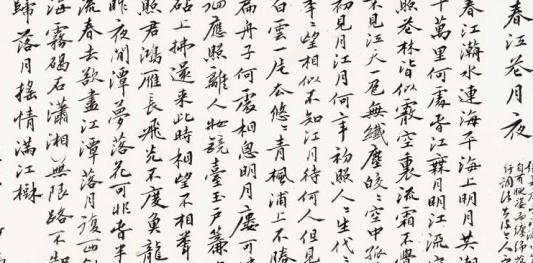 春江花月夜
春江潮水連海平海上明月共潮
千萬里何處春江無月明江流宛
照花林皆似霰空裏流霜不覺
不見江天一色無纖塵皎〻空中孤
初見月江月何年初照人〻生代〻
年〻望相似不知江月待何人但見
白雲一片去悠〻青楓浦上不勝
扁舟子何處相思明月樓可
徊應照離人妝鏡臺玉戶簾
砧上拂還來此時相望不相聞
照君鴻雁長飛光不度魚龍
昨夜閒潭夢落花可憐春半
流春去欲盡江潭落月復西斜
海霧碣石瀟湘無限路不知
歸落月搖情滿江樹